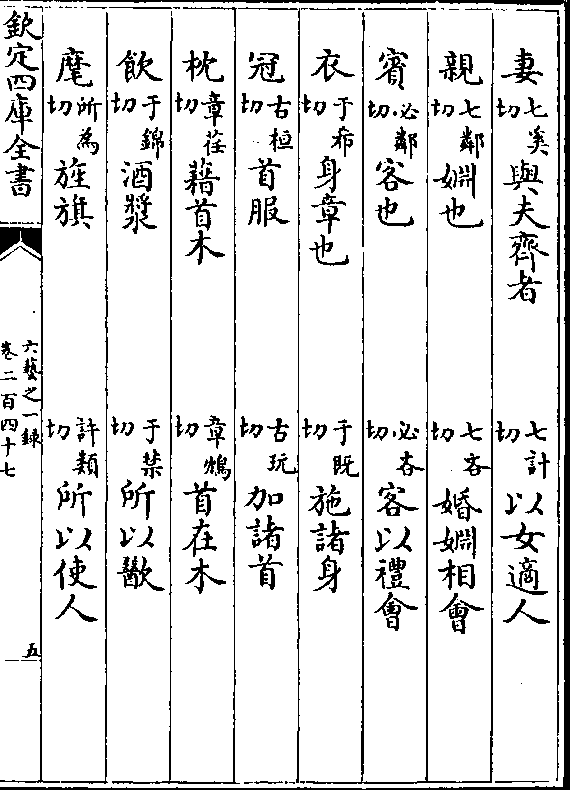 妻七奚切與夫齊者　七計切以女適人
親七鄰切婣也　七吝切婚婣相會
賓必鄰切客也　必吝切客以禮會
衣于希切身章也　于既切施諸身
冠古桓切首服　古玩切加諸首
枕章荏切藉首木　章鴆切首在木
飲于錦切酒漿　于禁切所以歠
麾所為切旌旗　許類切所以使人
欽定四庫全書
六藝之一錄
卷二百四十七
五